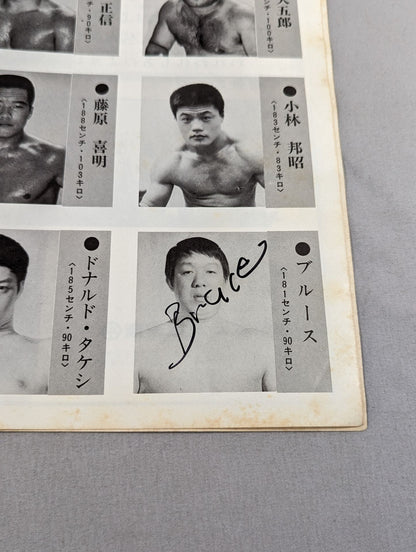 正信
・90キロ〉
五郎
・100キロ〉
●藤原 喜明
〈188センチ・103キロ〉
●小林 邦昭
〈183センチ・83キロ〉
●ドナルド・タケシ
〈185センチ・90キロ〉
●ブルース
〈181センチ・90キロ〉
Bruce